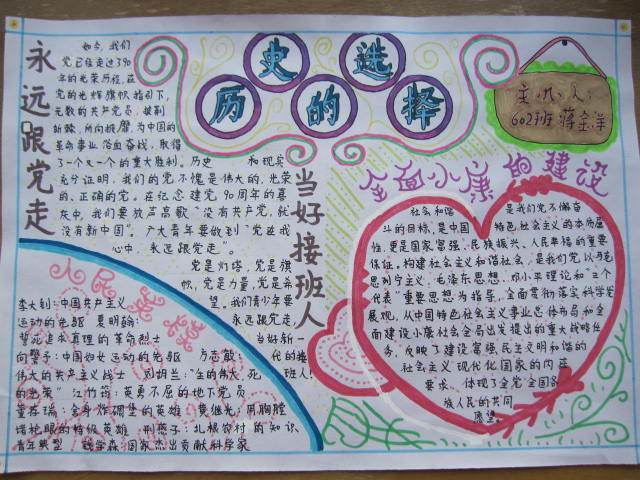 历史的选择
主办人:
602班 蒋金洋
永远跟党走
如今,我们
党已经走过了90
年的光荣历程,在
党的光辉旗帜指引下,
无数的共产党员,披荆
斩棘,所向披靡,为中国的
革命事业浴血奋战,取得
了一个又一个的重大胜利。历史 和现实
充分证明,我们的党不愧是伟大的,光荣
的、正确的党。在纪念建党90周年的喜
庆中,我们要放声高歌“没有共产党,就
没有新中国”。广大青年要做到“党在我
心中,永远跟党走”。
党是灯塔,党是旗
帜,党是力量,党是希
望。我们青少年要
永远跟党走,
当好新一
代的接
班人!
当好接班人
人民英雄
李大钊:中国共产主义
运动的先驱 夏明翰:
誓死追求真理的革命烈士
向警予:中国妇女运动的先驱 方志敏:
伟大的共产主义战士 刘胡兰:“生的伟大,死
的光荣” 江竹筠:英勇不屈的地下党员
董存瑞:舍身炸碉堡的英雄 黄继光:用胸膛
堵枪眼的特级英雄 邢燕子:扎根农村的知识
青年典型 钱学森:国家杰出贡献科学家
全面小康的建设
社会和谐 是我们党不懈奋
斗的目标,是中国 特色社会主义的本质属
性,更是国家富强、民族振兴、人民幸福的重要
保证。构建社会主义和谐社会,是我们党以马克
思列宁主义、毛泽东思想、邓小平理论和“三个
代表”重要思想为指导,全面贯彻落实科学发
展观,从中国特色社会主义事业总体布局和全
面建设小康社会全局出发提出的重大战略任
务,反映了建设富强民主文明和谐的
社会主义现代化国家的内在
要求,体现了全党全国各
族人民的共同
愿望。